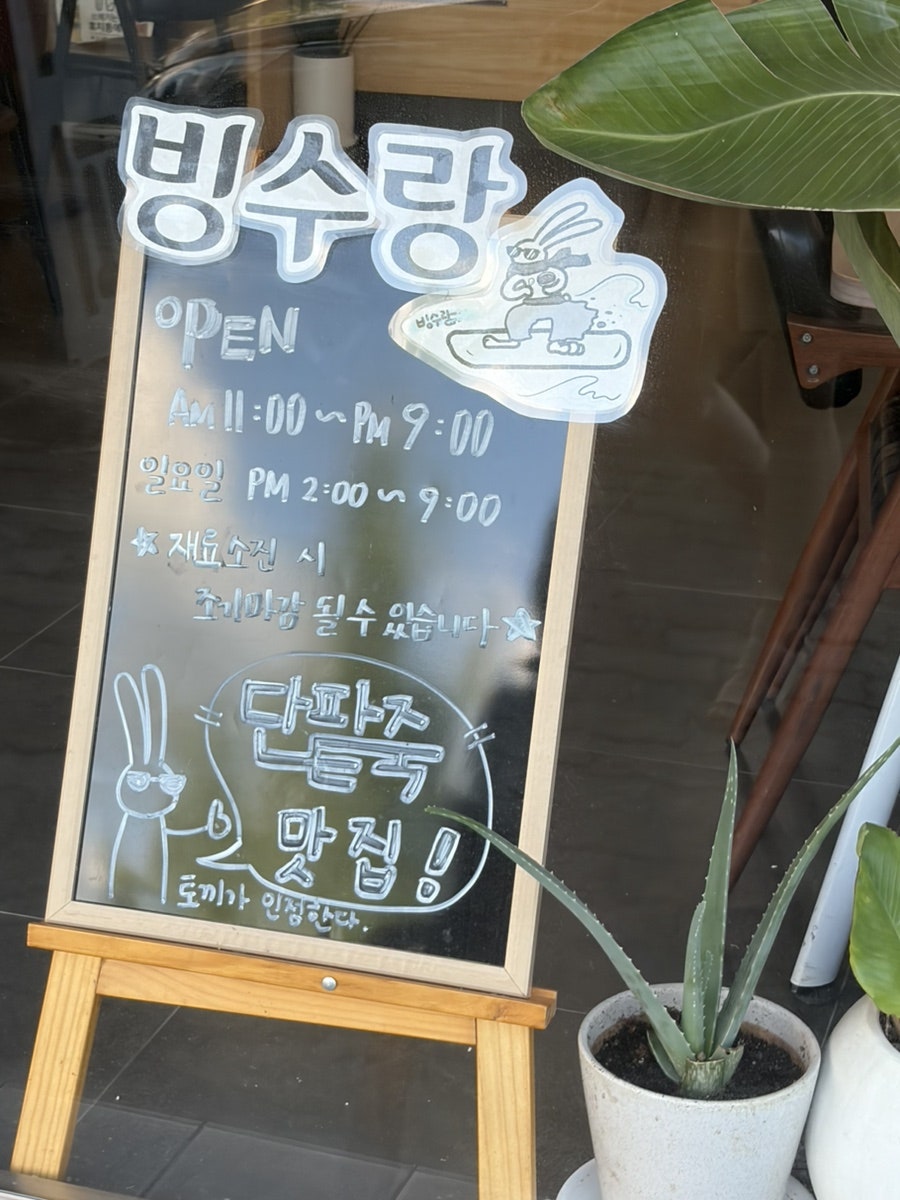 빙수랑
빙수랑
OPEN
AM 11:00 ~ PM 9:00
일요일 PM 2:00 ~ 9:00
☆ 재료소진 시
조기마감 될 수 있습니다 ☆
단팥죽
맛집!
토끼가 인정한다.